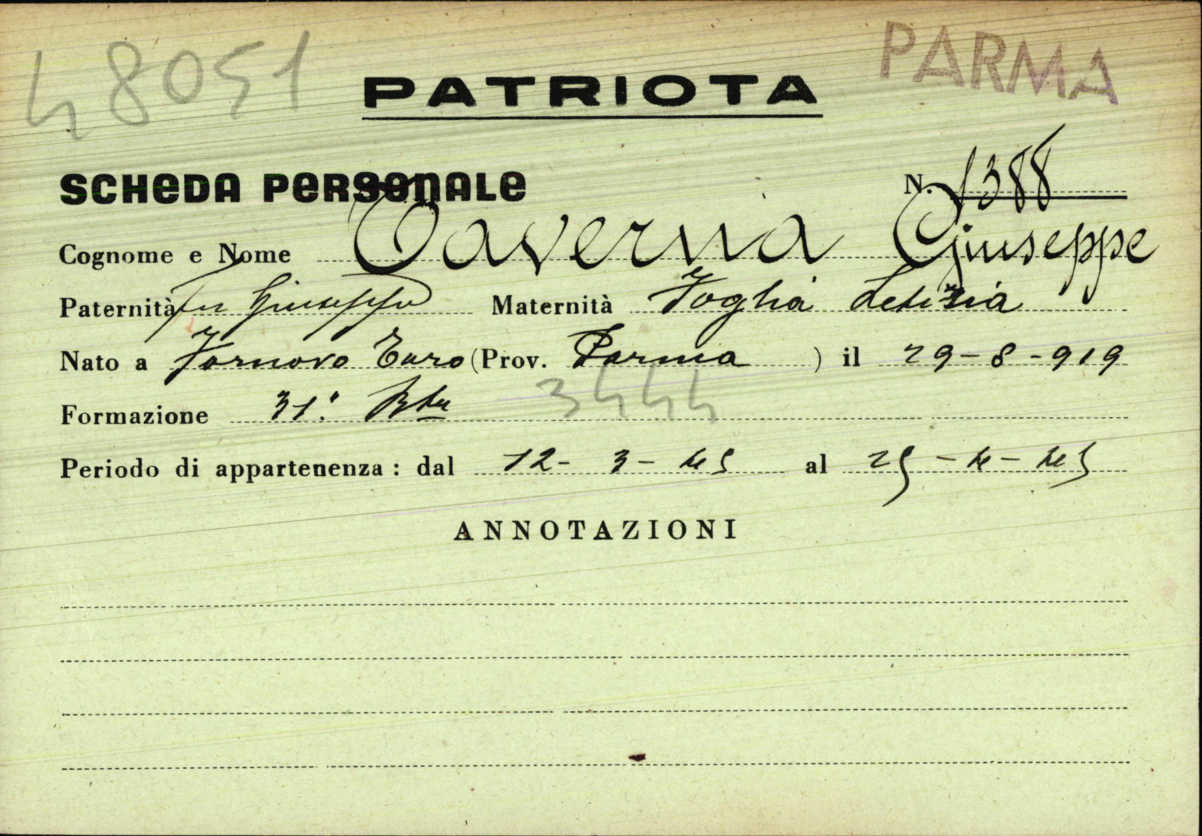 48051
PARMA
PATRIOTA
SCHEDA PERSONALE N. 1388
Cognome e Nome Taverna Giuseppe
Paternità fu Giuseppe Maternità Foglia Letizia
Nato a Fornovo Taro (Prov. Parma ) il 29-8-919
Formazione 31ª 3444
Periodo di appartenenza: dal 12-3-45 al 25-4-45
ANNOTAZIONI